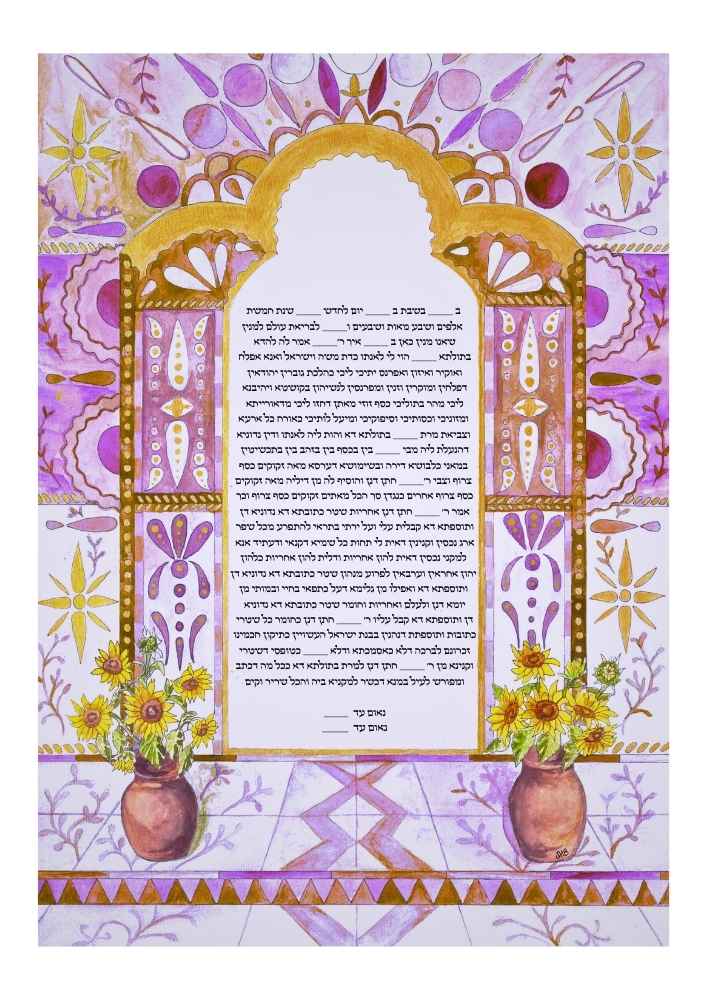 ב _____ בשבת ב _____ יום לחדש _____ שנת חמשת
אלפים ושבע מאות ושבעים ו_____ לבריאת עולם למנין
שאנו מנין כאן ב _____ איך ר' _____ אמר לה להדא
בתולתא _____ הוי לי לאנתו כדת משה וישראל ואנא אפלח
ואוקיר ואיזון ואפרנס יתיכי ליכי כהלכת גוברין יהודאין
דפלחין ומוקרין וזנין ומפרנסין לנשיהון בקושטא ויהיבנא
ליכי מהר בתוליכי כסף זוזי מאתן דחזו ליכי מדאורייתא
ומזוניכי וכסותיכי וסיפוקיכי ומיעל לותיכי כאורח כל ארעא
וצביאת מרת _____ בתולתא דא והות ליה לאנתו ודין נדוניא
דהנעלת ליה מבי _____ בין בכסף בין בזהב בין בתכשיטין
במאני דלבושא דירה ובשימושא דערסא מאה זקוקים כסף
צרוף וצבי ר' _____ חתן דנן והוסיף לה מן דיליה מאה זקוקים
כסף צרוף אחרים כנגדן סך הכל מאתים זקוקים כסף צרוף וכך
אמר ר' _____ חתן דנן אחריות שטר כתובתא דא נדוניא דן
ותוספתא דא קבלית עלי ועל ירתי בתראי להתפרע מכל שפר
ארג נכסין וקנינין דאית לי תחות כל שמיא דקנאי ודעתיד אנא
למקני נכסין דאית להון אחריות ודלית להון אחריות כלהון
יהון אחראין וערבאין לפרוע מנהון שטר כתובתא דא נדוניא דן
ותוספתא דא ואפילו מן גלימא דעל כתפאי בחיי ובמותי מן
יומא דנן ולעלם ואחריות וחומר שטר כתובתא דא נדוניא
דן ותוספתא דא קבל עליו ר' _____ חתן דנן כחומר כל שטרי
כתובות ותוספתת דנהגין בבנת ישראל העשויין כתיקון חכמינו
זכרונם לברכה דלא כאסמכתא ודלא _____ כטופסי דשטרי
וקנינא מן ר' _____ חתן דנן למרת בתולתא דא ככל מה דכתב
ומפורש לעיל במנא דכשר למקניא ביה והכל שריר וקים
נאום עד _____
נאום עד _____